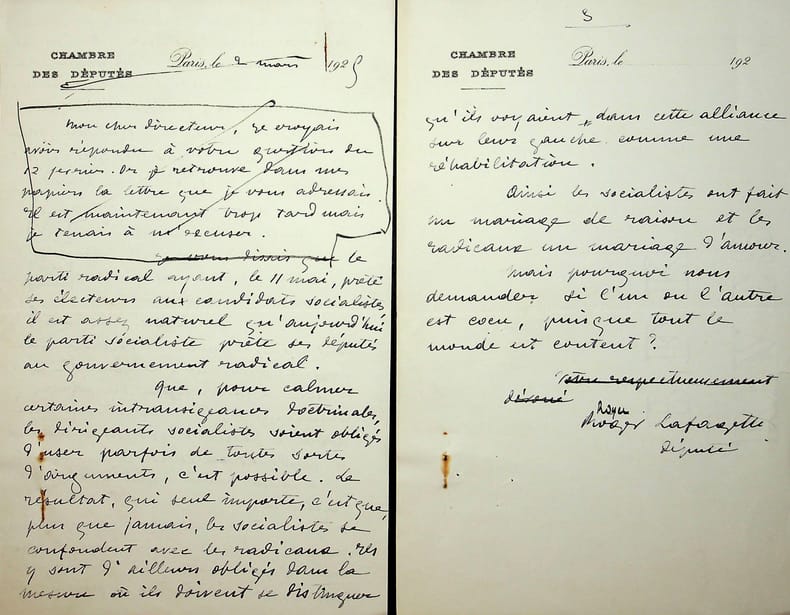 CHAMBRE
DES DÉPUTÉS
Paris, le 2 mars 1925
Mon cher directeur, je croyais
avoir répondu à votre question du
12 février. Or je retrouve dans mes
papiers la lettre que je vous adressais.
Il est maintenant trop tard mais
je tenais à m'excuser.
Je vous disais que le
parti radical ayant, le 11 mai, prêté
ses électeurs aux candidats socialistes,
il est assez naturel qu'aujourd'hui
le parti socialiste prête ses députés
au gouvernement radical.
Que, pour calmer
certaines intransigeances doctrinales,
les dirigeants socialistes soient obligés
d'user parfois de toutes sortes
d'arguments, c'est possible. Le
résultat, qui seul importe, c'est que,
plus que jamais, les socialistes se
confondent avec les radicaux. Ils
y sont d'ailleurs obligés dans la
mesure où ils doivent se distinguer
CHAMBRE
DES DÉPUTÉS
Paris, le 192
qu'ils voyaient dans cette alliance
sur leur gauche comme une
réhabilitation.
Ainsi les socialistes ont fait
un mariage de raison et les
radicaux un mariage d'amour.
Mais pourquoi nous
demander si l'un ou l'autre
est cocu, puisque tout le
monde est content ?
Votre respectueusement
dévoué
Roger
Roger Lafagette
député